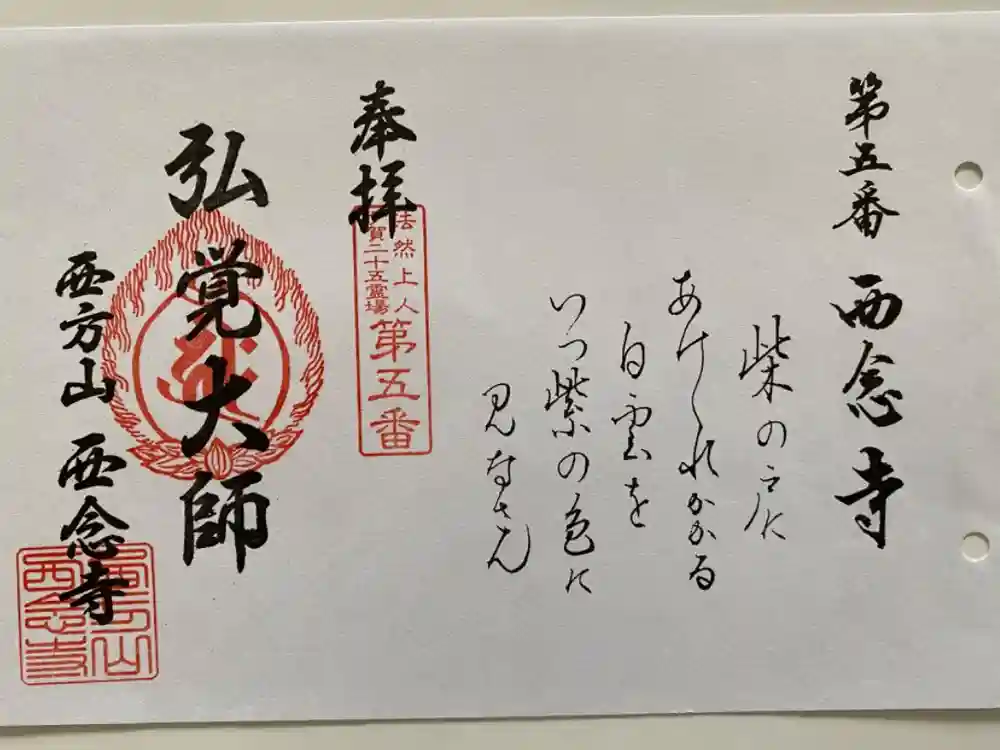 第五番 西念寺
柴の戸に
あけくれかかる
白雲を
いつ紫の色に
見なさん
奉拝
法然上人
賀二十五霊場
第五番
弘覚大師
西方山 西念寺
西念寺